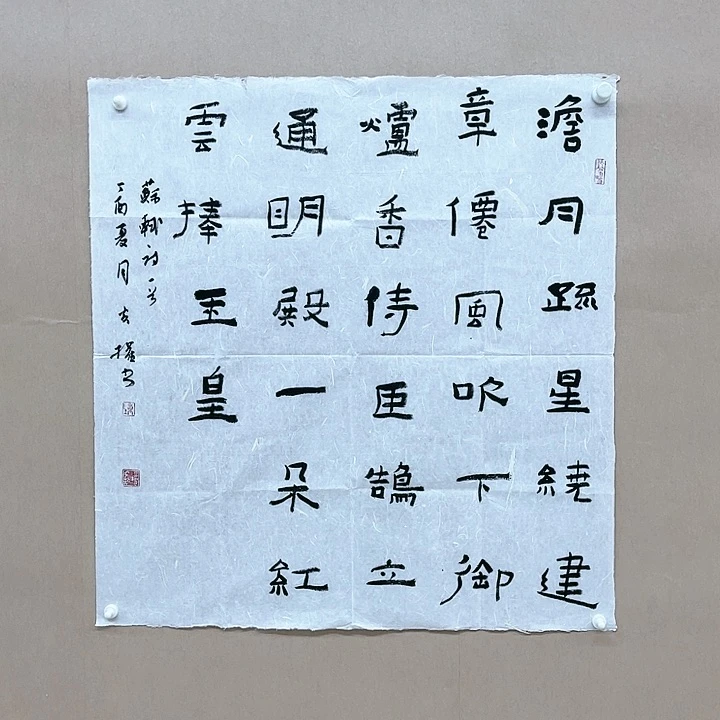 澹月䟽星繞建
章僊風吹下御
爐香侍臣鵠立
通明殿一朵紅
雲捧玉皇
蘇軾詩一首
丁酉夏月
書